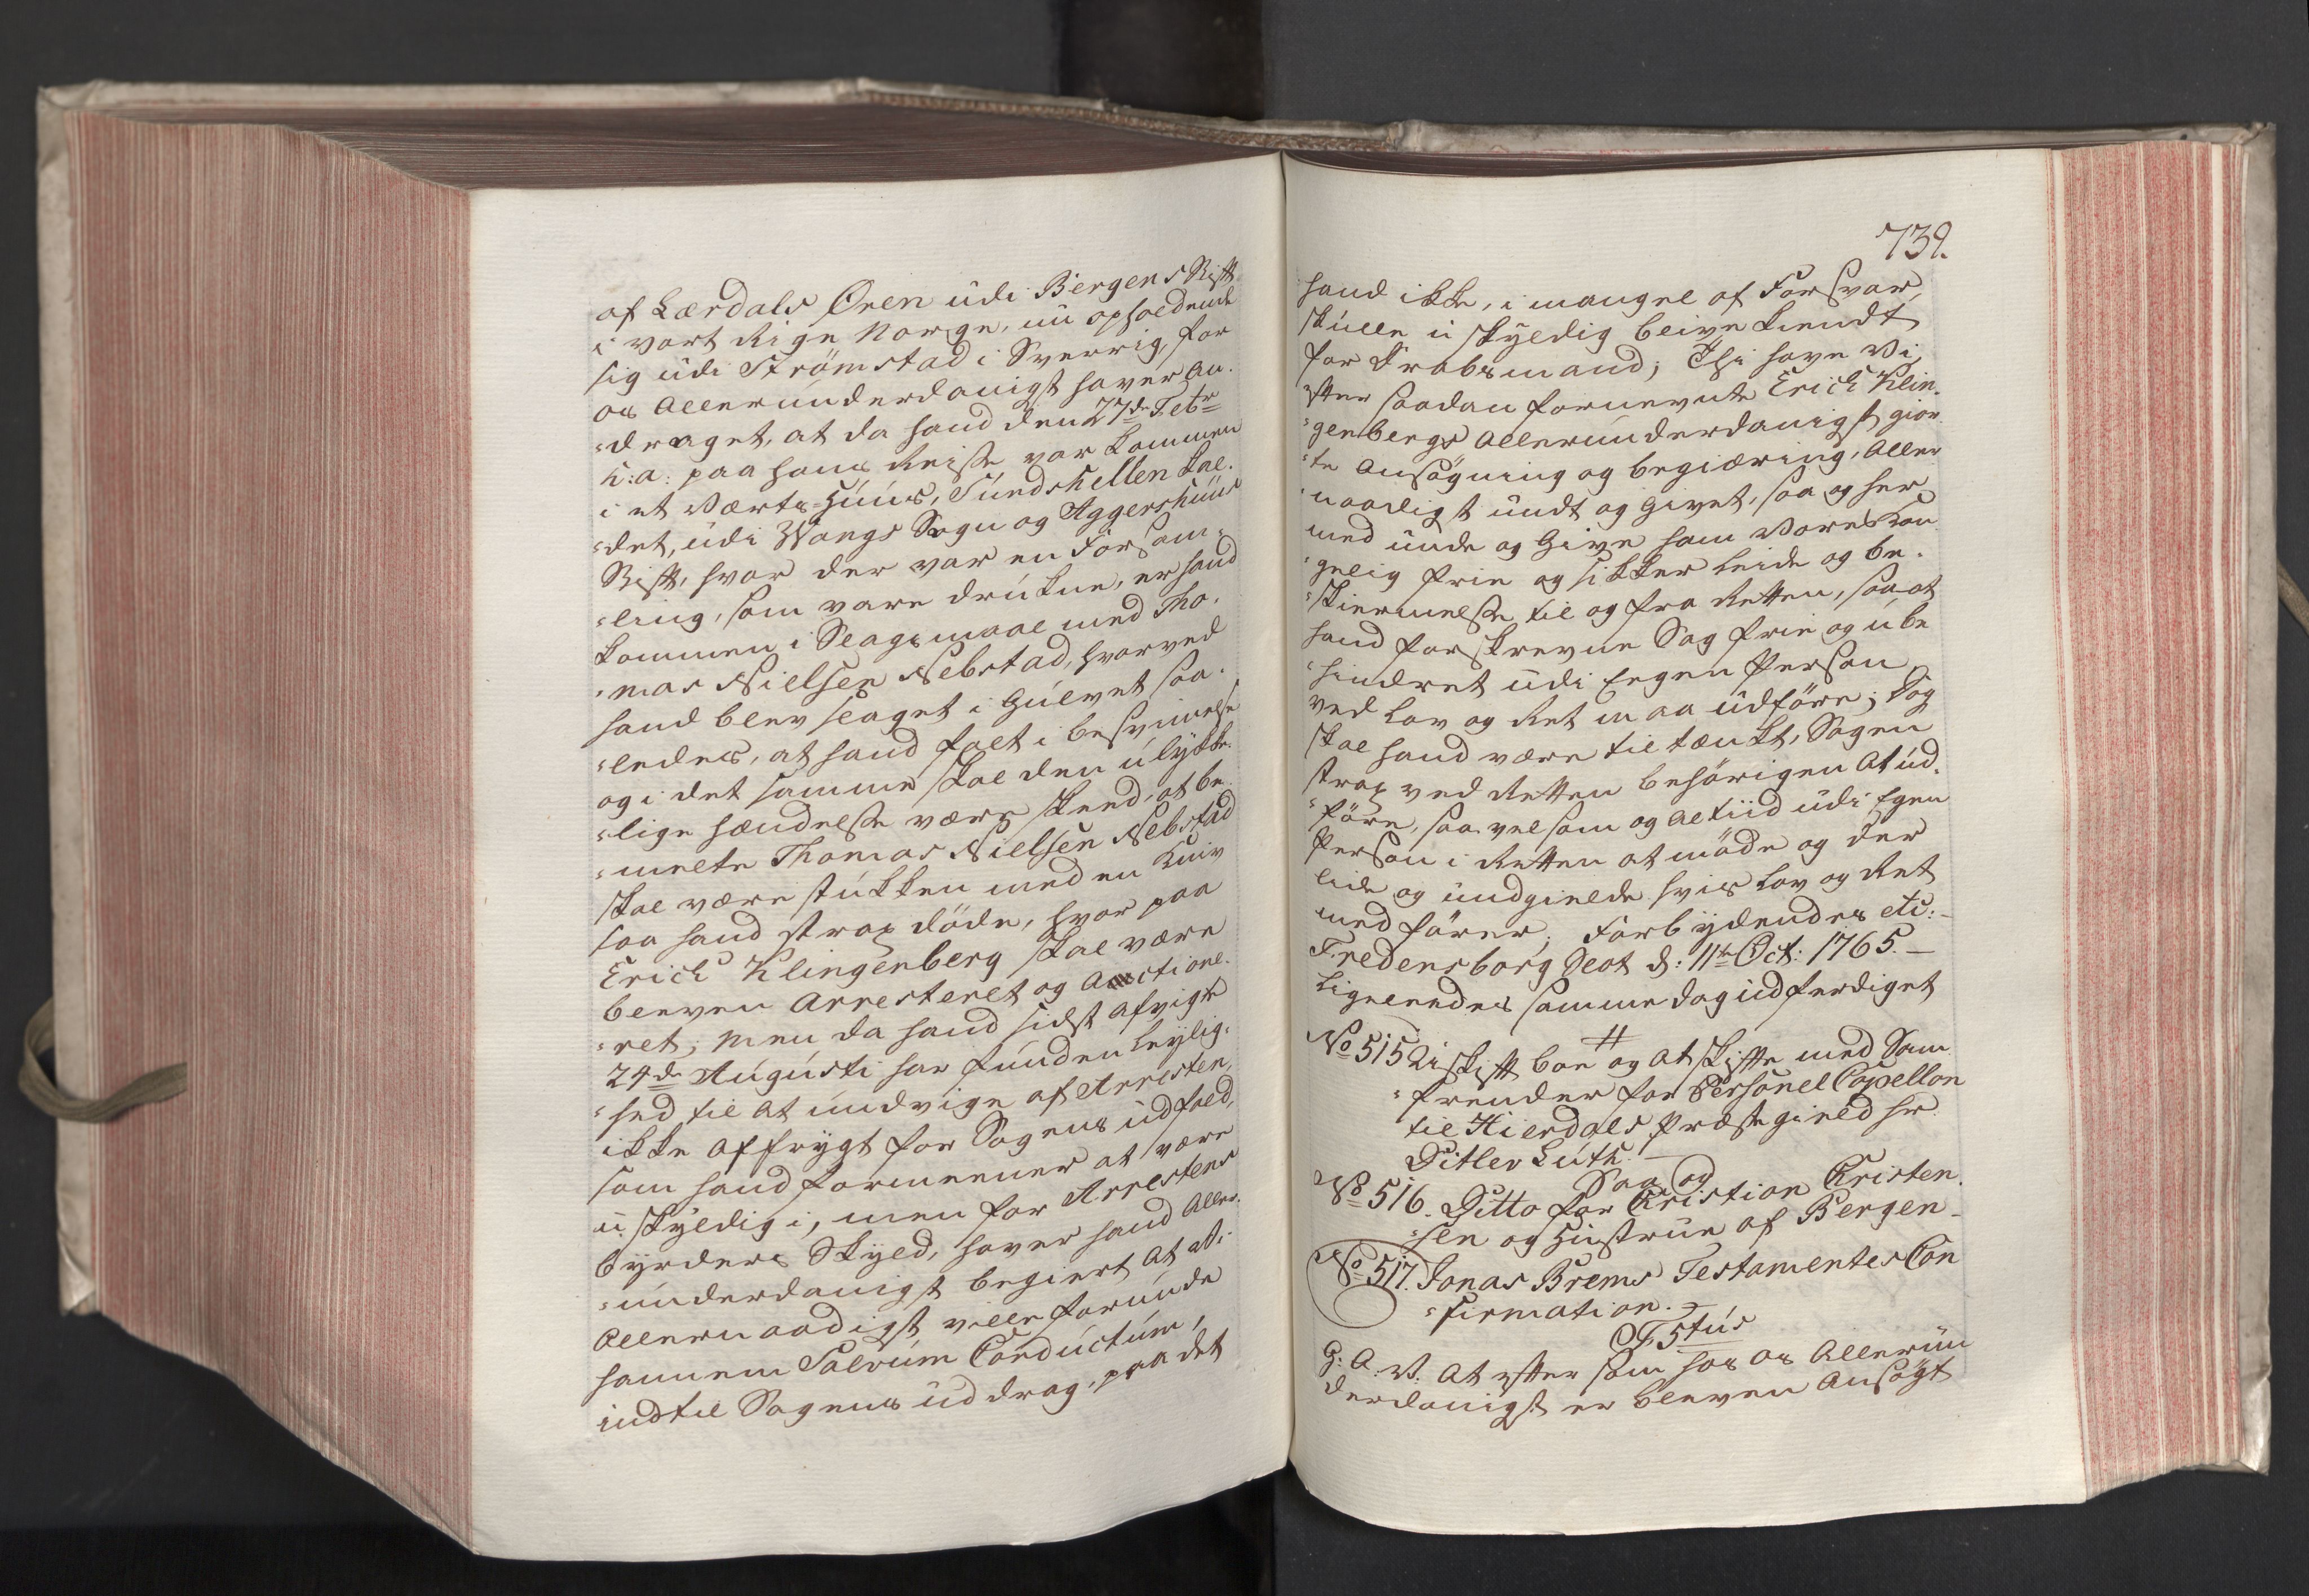 af Lærdals Øren udi Bergens Stift
i vort Rige Norge, nu opholdende
sig udi Strömstad i Sverrig, for
os Allerunderdanigst haver an-
"draget, at da hand den 27de Febr
h: a: paa hans Reise var kommen
i et Værts-Huus, Sundshellen kal-
"det, udi Wangs Sogn og Aggershuus
Stift, hvor der var en Forsam-
"ling, som vare drukne, er hand
kommen i Slagsmaal med Tho-
"mas Nielsen Nebstad, hvorved
hand blev slaget i Gulvet saa-
"ledes, at hand falt i besvimelse
og i det samme skal den ulykke-
"lige hændelse være skeed, at be-
"melte Thomas Nielsen Nebstad
skal være stukken med en Kniv
saa hand strax döde, hvor paa
Erich Klingenberg skal være
bleven Arresteret og Actione-
"ret; men da hand sidst afvigte
24de Augusti har funden leylig-
"hed til at undvige af Arresten,
ikke af frygt for Sagens udfald,
som hand formeener at være
u-skyldig i, men for Arrestens
byrders Skyld, haver hand Aller-
"underdanigst begiert at Vi
Allernaadigst ville forunde
hannem Salvum Conductum,
indtil Sagens uddrag, paa det
739.
hand ikke, i mangel af Forsvar,
skulle u-skyldig blive kiendt
for Drabsmand; Thi have Vi,
efter saadan fornevnte Erich Klin-
"genbergs Allerunderdanigst gior-
"te Ansögning og begiæring, Aller-
"naadigst undt og givet, saa og her
med unde og Give ham Vores Kon-
"gelig frie og sikker Leide og be-
"skiermelse til og fra Retten, saa at
hand forskrevne Sag frie og ube-
"hindret udi Egen Person,
ved Lov og Ret maa udföre; Dog
skal hand være tiltænkt, Sagen
strax ved Retten behörigen at ud-
"före, saa vel som og altiid udi Egen
Person i Retten at möde og der
lide og undgielde hvis Lov og Ret
medförer. Forbydendes etc:
Fredensborg Slot d: 11te Oct: 1765. —
Ligeleedes samme dag udferdiget
No 515 Uiskift boe og at skifte med Sam-
"frender for Personel Capellan
til Hierdals Præstegield Hr.
Ditlev Luth. —
Saa og
No 516. Ditto for Christian Christen-
"sen og Hustrue af Bergen-
No 517. Jonas Brems Testamentes Con-
"firmation.
CF5tus
G: A: V: At efter som hos os Allerun-
derdanigst er bleven Ansögt